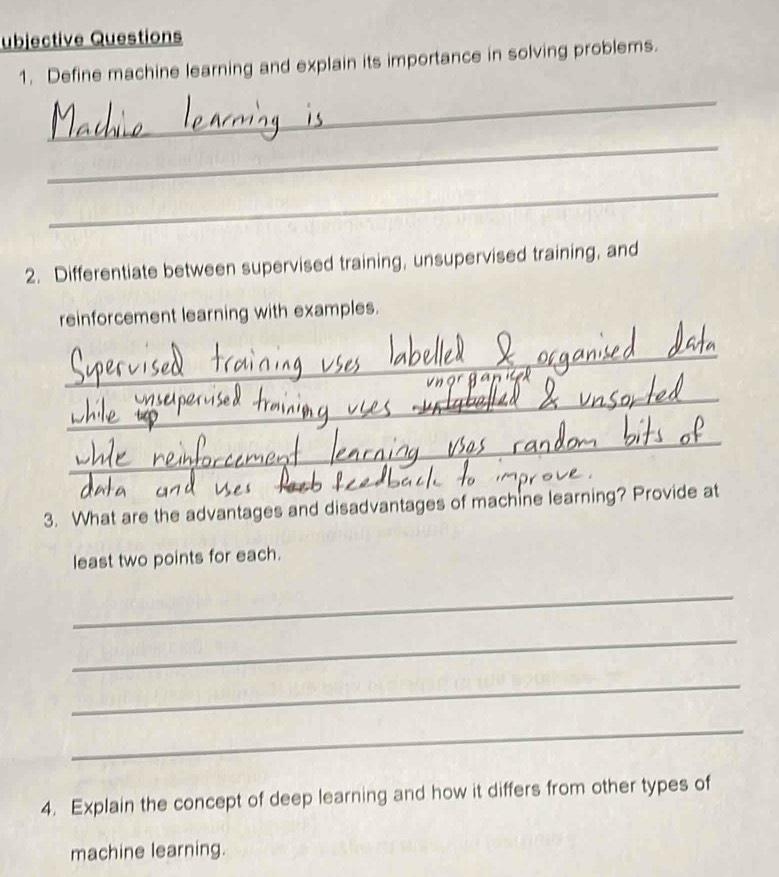 ubjective Questions
1. Define machine learning and explain its importance in solving problems.
Machine learning is
2. Differentiate between supervised training, unsupervised training, and
reinforcement learning with examples.
Supervised training uses labelled & organised data
unorganised
while unsupervised training uses untabelled & unsorted
while reinforcement learning uses random bits of
data and uses feedback to improve.
3. What are the advantages and disadvantages of machine learning? Provide at
least two points for each.
4. Explain the concept of deep learning and how it differs from other types of
machine learning.